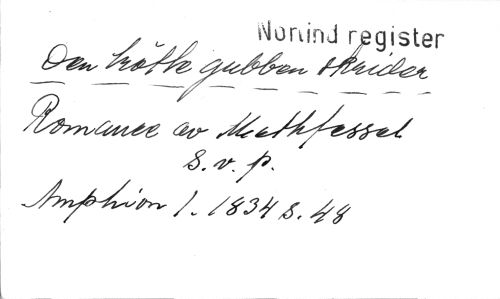 Norlind register
Den trötte gubben skrider
Romance av Methfessel
S. v. p.
Amphion 1. 1834 s. 48